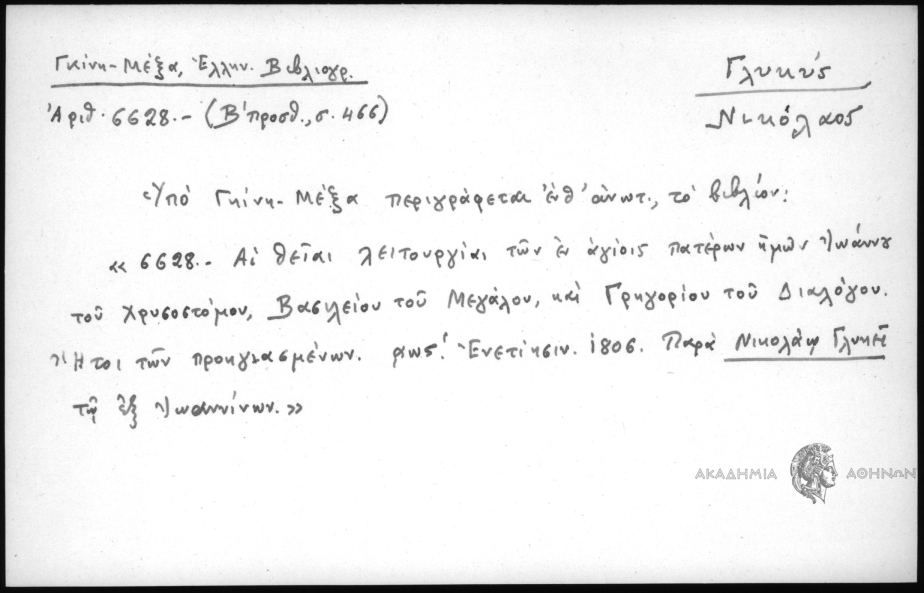 Γκίνη-Μέξα, Ἑλλην. Βιβλιογρ.
Ἀριθ. 6628.- (Β' προσθ., σ. 466)
Γλυκύς
Νικόλαος
Ὑπὸ Γκίνη-Μέξα περιγράφεται ἐνθ' ἀνωτ., τὸ βιβλίον:
«6628.- Αἱ θεῖαι λειτουργίαι τῶν ἐν ἁγίοις πατέρων ἡμῶν Ἰωάννου
τοῦ Χρυσοστόμου, Βασιλείου τοῦ Μεγάλου, καὶ Γρηγορίου τοῦ Διαλόγου.
Ἤτοι τῶν προηγιασμένων. αωϛ'. Ἐνετίῃσιν. 1806. Παρὰ Νικολάῳ Γλυκεῖ
τῷ ἐξ Ἰωαννίνων.»
ΑΚΑΔΗΜΙΑ ΑΘΗΝΩΝ